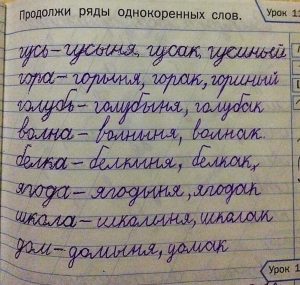 Продолжи ряды однокоренных слов.
Урок 1
гусь – гусыня, гусак, гусиный
гора – горыня, горак, гориный
голубь – голубыня, голубак
волна – волныня, волнак
белка – белкыня, белкак,
ягода – ягодыня, ягодак
школа – школыня, школак
дом – домыня, домак
Урок 1